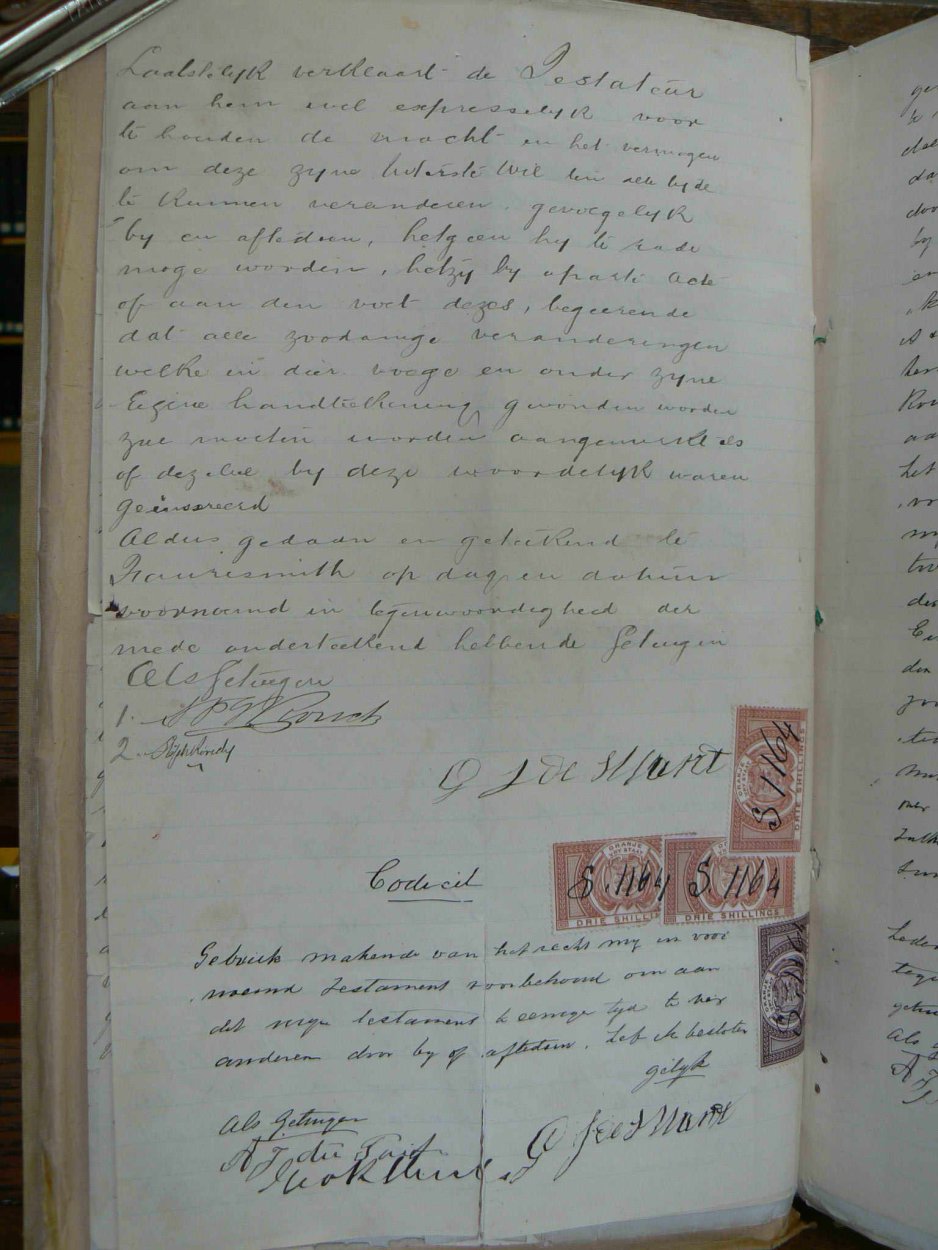 Laatstelyk verklaart de Testateur
aan hem wel expresselyk voor
te houden de macht en het vermogen
om deze zyne Uiterste Wil ten alle tyde
te kunnen veranderen, gevoegelyk
by en afte doen, hetgeen hy te rade
moge worden, hetzy by aparte acte
of aan den voet dezes, begeerende
dat alle zoodanige veranderingen
welke in dier voege en onder zyne
Eigene handteekening gevonden worden
zal moeten worden aangemerkt als
of dezelve by deze woordelyk waren
geinsereerd
Aldus gedaan en geteekend te
Fauresmith op dag en datum
voornoemd in tegenwoordigheid der
mede onderteekend hebbende Getuigen
Als Getuigen
1.
2.
Codicil
Gebruik makende van het recht my in voor
noemd Testament voorbehoud om aan
dit myn testament te eeniger tyd te ver
anderen door by of aftedoen, heb ik besloten
gelyk
Als Getuigen
A J du Toit
ORANJE VRY STAAT
DRIE SHILLINGS
S 1164
ORANJE VRY STAAT
DRIE SHILLINGS
S. 1164
DRIE SHILLINGS
S. 1164
ORANJE